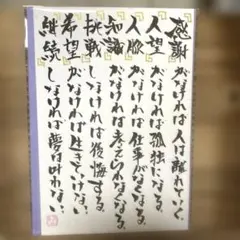 感謝がなければ人は離れていく。
人望がなければ孤独になる。
人脈がなければ仕事がなくなる。
知識がなければ考えられなくなる。
挑戦しなければ後悔する。
希望がなければ生きていけない。
継続しなければ夢は叶わない。